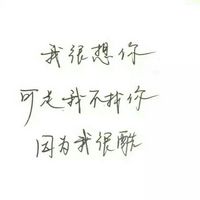 我很想你
可是我不找你
因为我很酷